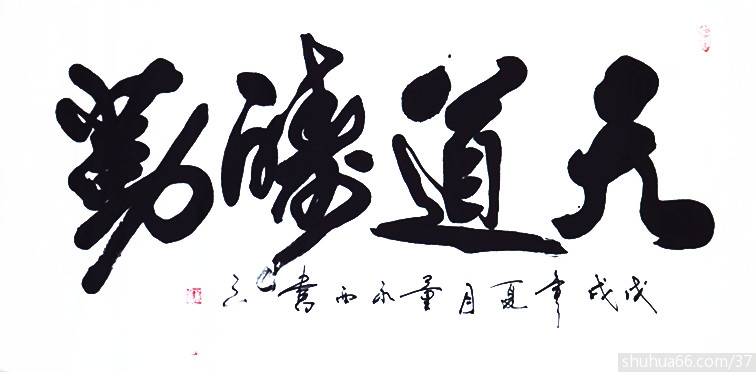 天道酬勤
戊戌年夏月永西書
shuhua66.com/37